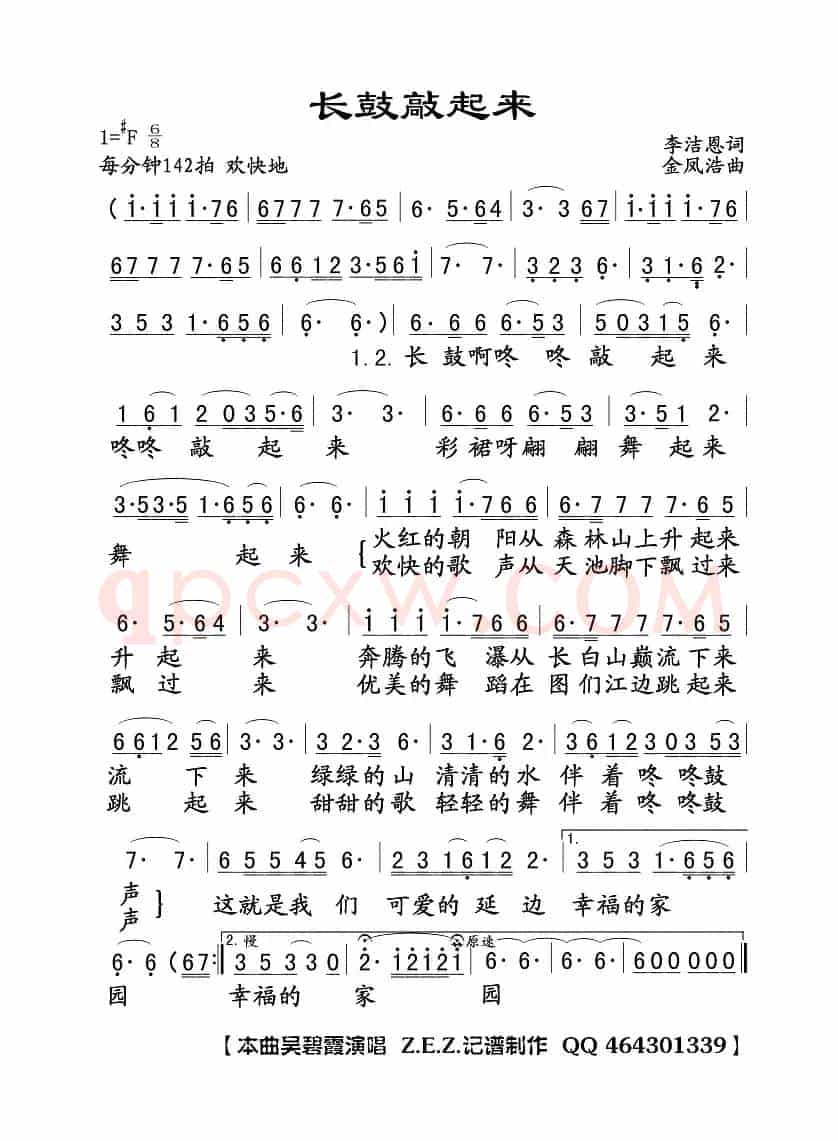 长鼓敲起来
1=#F 6/8
李洁恩词
每分钟142拍 欢快地
金凤浩曲
( i·i i i i·76 | 67777 7·65 | 6· 5·64 | 3· 3 67 | i·i i i i·76 |
67777 7·65 | 6612 3·56i | 7· 7· | 323 6· | 31·6 2· |
353 1·656 | 6· 6·) | 6·66 6·53 | 50315 6· |
1.2. 长 鼓啊咚 咚 敲 起 来
161 2035·6 | 3· 3· | 6·66 6·53 | 3·51 2· |
咚咚 敲 起 来 彩 裙呀翩 翩 舞 起 来
3·53·5 1·656 | 6· 6· | i i i i·766 | 6·777 7·65 |
舞 起 来 { 火红的朝 阳从 森林山上升 起来
欢快的歌 声从 天池脚下飘 过来
6· 5·64 | 3· 3· | i i i i·766 | 6·777 7·65 |
升 起 来 奔腾的飞 瀑从 长白山巅流 下来
飘 过 来 优美的舞 蹈在 图们江边跳 起来
6612 56 | 3· 3· | 32·3 6· | 31·6 2· | 361230353 |
流 下 来 绿绿的山 清清的水 伴 着 咚 咚鼓
跳 起 来 甜甜的歌 轻轻的舞 伴 着 咚 咚鼓
7· 7· | 65545 6· | 231612 2· | 1. 353 1·656 |
声
声 } 这就是我 们 可爱的 延 边 幸福的家
6· 6 (67:| 2. 慢 353330 | 2· i2i2i 原速 | 6· 6· | 6· 6· | 600000 ‖
园 幸福的 家 园
【本曲吴碧霞演唱 Z.E.Z.记谱制作 QQ 464301339】
qpcxw.com